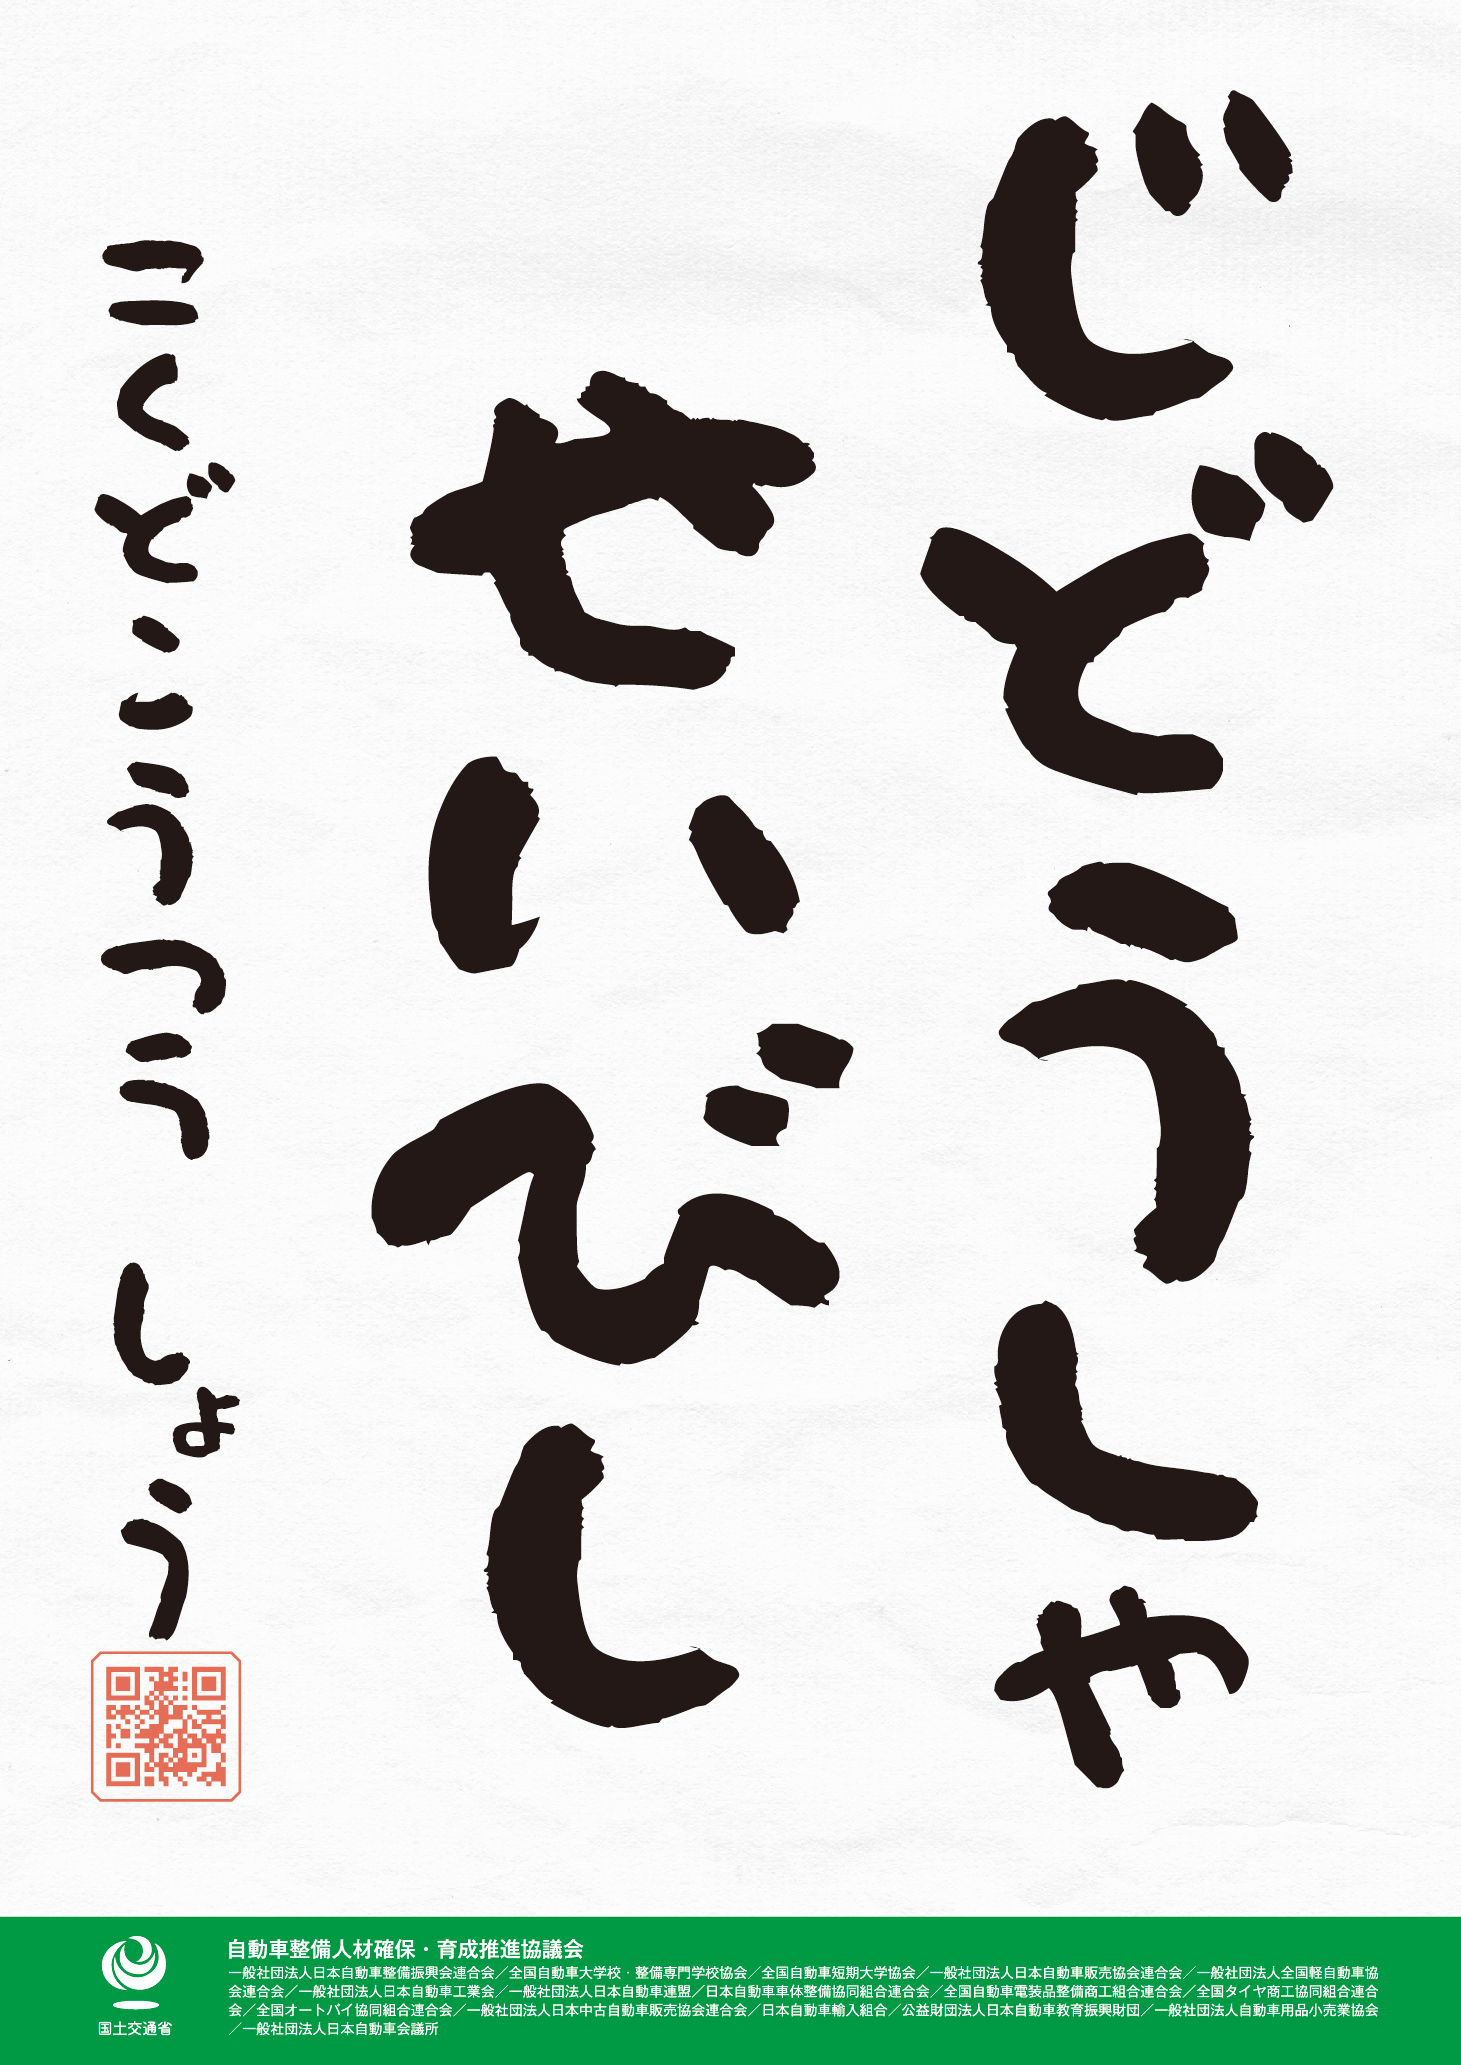 じどうしゃ
せいびし
こくどこうつうしょう
国土交通省
自動車整備人材確保・育成推進協議会
一般社団法人日本自動車整備振興会連合会／全国自動車大学校・整備専門学校協会／全国自動車短期大学協会／一般社団法人日本自動車販売協会連合会／一般社団法人全国軽自動車協
会連合会／一般社団法人日本自動車工業会／一般社団法人日本自動車連盟／日本自動車車体整備協同組合連合会／全国自動車電装品整備商工組合連合会／全国タイヤ商工協同組合連合
会／全国オートバイ協同組合連合会／一般社団法人日本中古自動車販売協会連合会／日本自動車輸入組合／公益財団法人日本自動車教育振興財団／一般社団法人自動車用品小売業協会
／一般社団法人日本自動車会議所